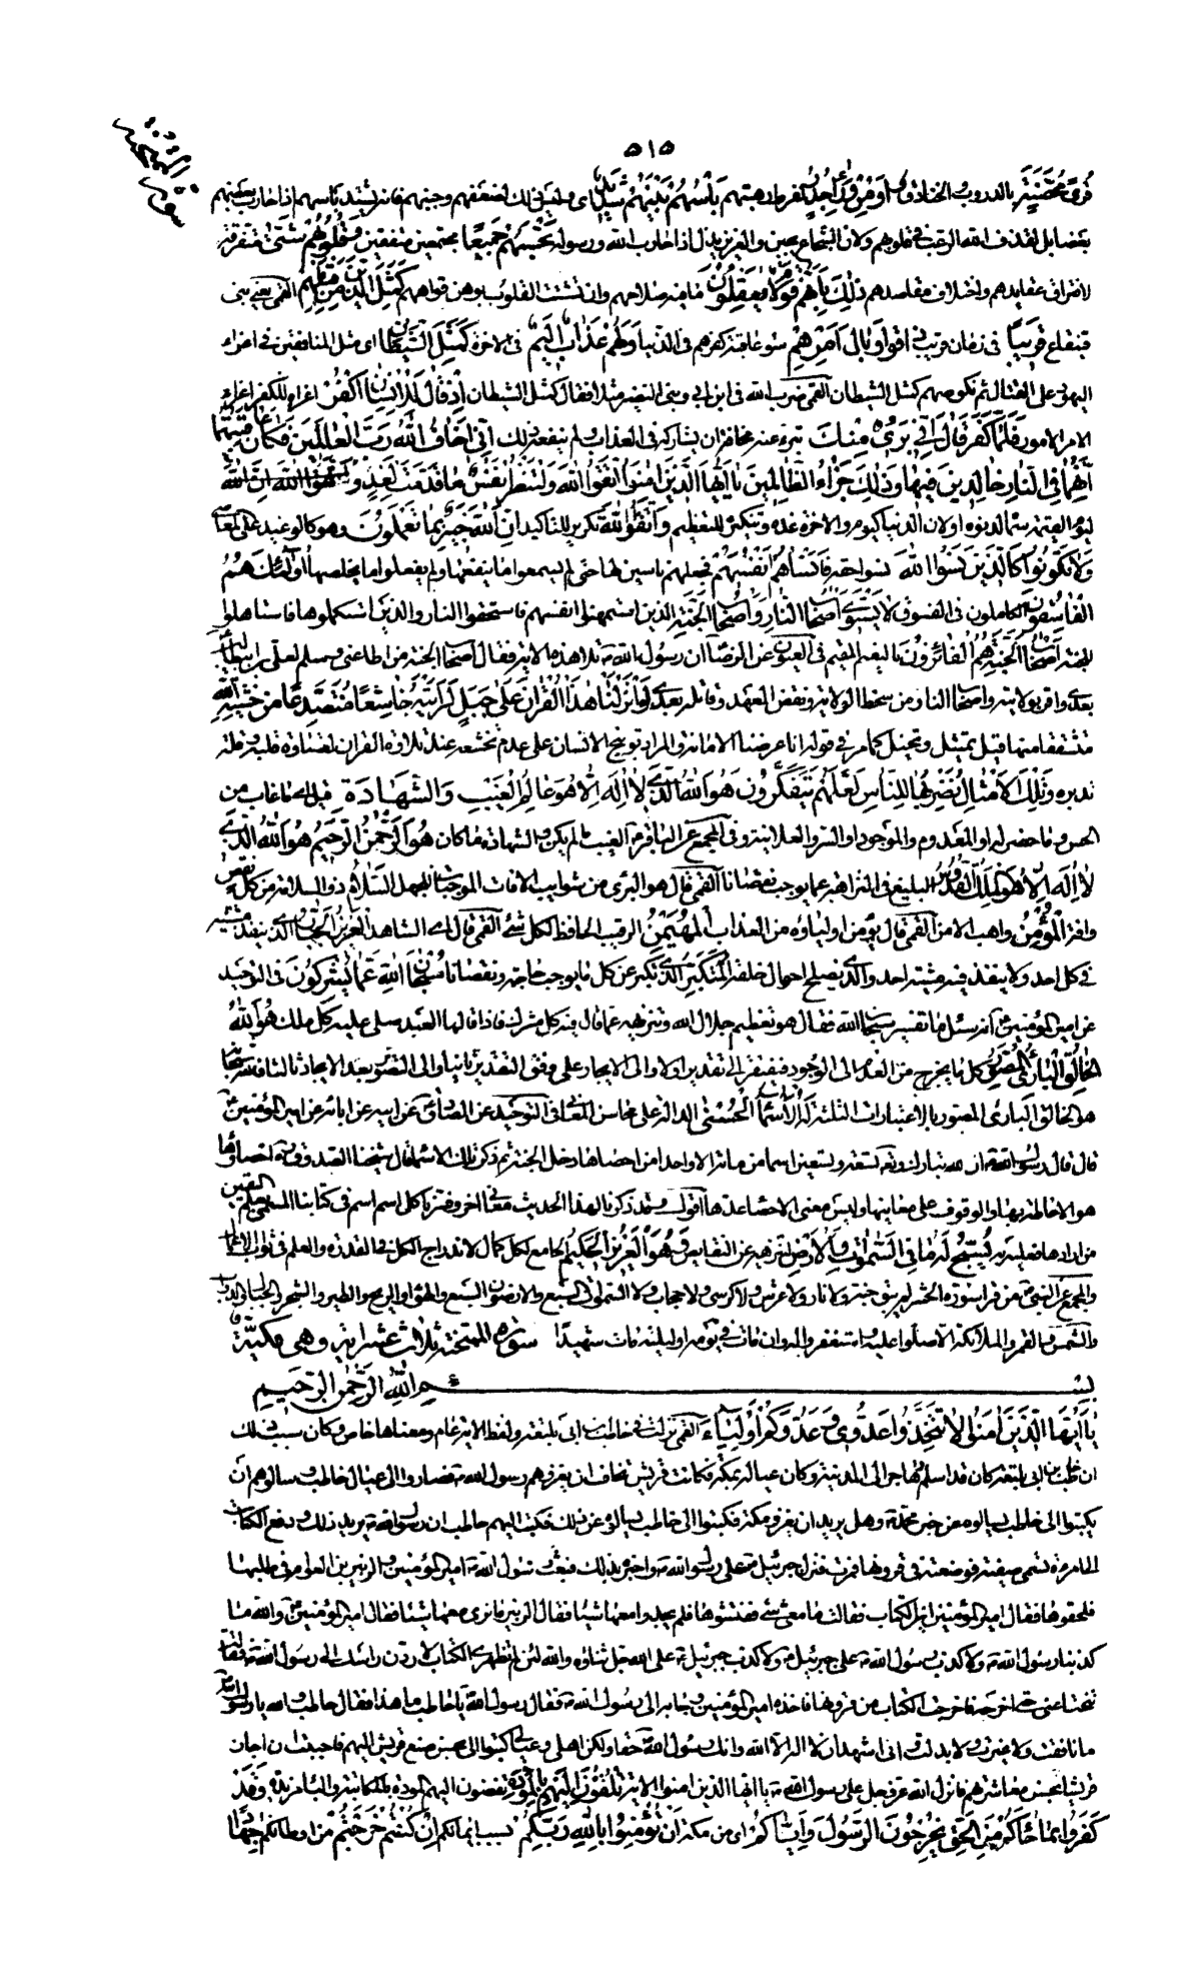 ٥١٥
سورة الممتحنة
قُرًى مُحَصَّنَةٍ بالدروب والخنادق أَوْ مِنْ وَرَاءِ جُدُرٍ لفرط رهبتهم بَأْسُهُمْ بَيْنَهُمْ شَدِيدٌ اى وليس ذلك لضعفهم وجبنهم فانه يشتد باسهم اذا حارب بعضهم
بعضا بل لقذف الله الرعب فى قلوبهم ولان الشجاع يجبن والعزيز يذل اذا حارب الله ورسوله تَحْسَبُهُمْ جَمِيعًا مجتمعين متفقين وَقُلُوبُهُمْ شَتّىٰ متفرقة
لافتراق عقايدهم واختلاف مقاصدهم ذٰلِكَ بِأَنَّهُمْ قَوْمٌ لَا يَعْقِلُونَ ما فيه صلاحهم وان تشتت القلوب يوهن قواهم كَمَثَلِ الَّذِينَ مِنْ قَبْلِهِمْ القمى يعنى بنى
قينقاع قَرِيبًا فى زمان قريب ذَاقُوا وَبَالَ أَمْرِهِمْ سوء عاقبة كفرهم فى الدنيا وَلَهُمْ عَذَابٌ أَلِيمٌ فى الآخرة كَمَثَلِ الشَّيْطَانِ اى مثل المنافقين فى اغراء
اليهود على القتال ثم نكوصهم كمثل الشيطان القمى ضرب الله فى ابن ابى وبنى النضير مثلا فقال كمثل الشيطان إِذْ قَالَ لِلْإِنْسَانِ اكْفُرْ اغراه للكفر اغراء
الامر المامور فَلَمَّا كَفَرَ قَالَ إِنِّي بَرِيءٌ مِنْكَ تبرء عنه مخافة ان يشاركه فى العذاب ولم ينفعه ذلك إِنِّي أَخَافُ اللَّهَ رَبَّ الْعَالَمِينَ فَكَانَ عَاقِبَتَهُمَا
أَنَّهُمَا فِي النَّارِ خَالِدَيْنِ فِيهَا وَذٰلِكَ جَزَاءُ الظَّالِمِينَ يَا أَيُّهَا الَّذِينَ آمَنُوا اتَّقُوا اللَّهَ وَلْتَنْظُرْ نَفْسٌ مَا قَدَّمَتْ لِغَدٍ
ليوم القيمة سماه لدنوه او لان الدنيا كيوم والاخرة غده وتنكيره للتعظيم وَاتَّقُوا اللَّهَ تكرير للتاكيد إِنَّ اللَّهَ خَبِيرٌ بِمَا تَعْمَلُونَ وهو كالوعيد على المعاصى
وَلَا تَكُونُوا كَالَّذِينَ نَسُوا اللَّهَ نسوا حقه فَأَنْسَاهُمْ أَنْفُسَهُمْ فجعلهم ناسين لها حتى لم يسمعوا ما ينفعها ولم يفعلوا ما يخلصها أُولٰئِكَ هُمُ
الْفَاسِقُونَ الكاملون فى الفسوق لَا يَسْتَوِي أَصْحَابُ النَّارِ وَأَصْحَابُ الْجَنَّةِ الذين استمهنوا انفسهم فاستحقوا النار والذين استكملوها فاستاهلوا
للجنة أَصْحَابُ الْجَنَّةِ هُمُ الْفَائِزُونَ بالنعيم المقيم فى العيون عن الرضا ان رسول الله تلا هذه الاية فقال اصحاب الجنة من اطاعنى وسلم لعلى بن ابيطالب
بعدى واقر بولايته واصحاب النار من سخط الولاية ونقض العهد وقاتله بعدى لَوْ أَنْزَلْنَا هٰذَا الْقُرْآنَ عَلىٰ جَبَلٍ لَرَأَيْتَهُ خَاشِعًا مُتَصَدِّعًا مِنْ خَشْيَةِ اللَّهِ
متشققا منها قيل تمثيل وتخييل كما مر فى قوله انا عرضنا الامانة والمراد توبيخ الانسان على عدم تخشعه عند تلاوة القران لقساوة قلبه وقلة
تدبره وَتِلْكَ الْأَمْثَالُ نَضْرِبُهَا لِلنَّاسِ لَعَلَّهُمْ يَتَفَكَّرُونَ هُوَ اللَّهُ الَّذِي لَا إِلٰهَ إِلَّا هُوَ عَالِمُ الْغَيْبِ وَالشَّهَادَةِ قيل اى ما غاب من
الحس وما حضر له او المعدوم والموجود او السر والعلانية وفى المجمع عن الباقر الغيب ما لم يكن والشهادة ما كان هُوَ الرَّحْمٰنُ الرَّحِيمُ هُوَ اللَّهُ الَّذِي
لَا إِلٰهَ إِلَّا هُوَ الْمَلِكُ الْقُدُّوسُ البليغ فى النزاهة عما يوجب نقصانا القمى قال هو البرىء من شوايب الافات الموجبات للجهل السَّلَامُ ذو السلامة من كل نقص
وافة الْمُؤْمِنُ واهب الامن القمى قال يؤمن اولياؤه من العذاب الْمُهَيْمِنُ الرقيب الحافظ لكل شئ القمى قال اى الشاهد الْعَزِيزُ الْجَبَّارُ الذى ينفذ مشيته
فى كل احد ولا ينفذ فيه مشية احد والذى يصلح احوال خلقه الْمُتَكَبِّرُ الذى تكبر عن كل ما يوجب حاجة ونقصانا سُبْحَانَ اللَّهِ عَمَّا يُشْرِكُونَ فى التوحيد
عن امير المؤمنين انه سئل ما تفسير سبحان الله فقال هو تعظيم جلال الله وتنزيهه عما قال فيه كل مشرك فاذا قالها العبد صلى عليه كل ملك هُوَ اللَّهُ
الْخَالِقُ الْبَارِئُ الْمُصَوِّرُ كل ما يخرج من العدم الى الوجود فيفتقر الى تقدير اولا والى الايجاد على وفق التقدير ثانيا والى التصوير بعد الايجاد ثالثا فالله سبحانه
هو الخالق البارئ المصور بالاعتبارات الثلثة لَهُ الْأَسْمَاءُ الْحُسْنىٰ الدالة على محاسن المعانى فى التوحيد عن الصادق عن ابيه عن ابائه عن امير المؤمنين
قال قال رسول الله ان لله تبارك وتعالى تسعة وتسعين اسما من مائة الا واحدا من احصاها دخل الجنة ثم ذكر تلك الاسماء قال شيخنا الصدوق احصاؤها
هو الاحاطة بها والوقوف على معانيها وليس معنى الاحصاء عدها اقول وقد ذكرنا لهذا الحديث معنى اخر وفسرنا كل اسم اسم فى كتابنا المسمى بعلم اليقين
من ارادها فليه يُسَبِّحُ لَهُ مَا فِي السَّمٰوَاتِ وَالْأَرْضِ لتنزهه عن النقايص وَهُوَ الْعَزِيزُ الْحَكِيمُ الجامع لكل كمال لاندراج الكل فى القدرة والعلم فى ثواب الاعمال
والمجمع عن النبى من قرا سورة الحشر لم يبق جنة ولا نار ولا عرش ولا كرسى ولا حجاب ولا السموات السبع ولا الارضون السبع والهواء والريح والطير والشجر والجبال والدواب
والشمس والقمر والملائكة الا صلوا عليه واستغفروا له وان مات فى يومه او ليلته مات شهيدا سورة الممتحنة ثلاث عشر اية وهى مكيّة
بسم الله الرحمن الرحيم
يَا أَيُّهَا الَّذِينَ آمَنُوا لَا تَتَّخِذُوا عَدُوِّي وَعَدُوَّكُمْ أَوْلِيَاءَ القمى نزلت فى حاطب بن ابى بلتعة ولفظ الاية عام ومعناها خاص وكان سبب ذلك
ان حاطب بن ابى بلتعة كان قد اسلم وهاجر الى المدينة وكان عياله بمكة وكانت قريش تخاف ان يغزوهم رسول الله فصاروا الى عيال حاطب وسالوهم ان
يكتبوا الى حاطب يسالوه عن خبر محمد وهل يريد ان يغزو مكة فكتبوا الى حاطب يسالونه عن ذلك فكتب اليهم حاطب ان رسول الله يريد ذلك ودفع الكتاب
الى امرءة تسمى صفية فوضعته فى قرونها فمرت فنزل جبرئيل على رسول الله واخبره بذلك فبعث رسول الله امير المؤمنين والزبير بن العوام فى طلبها
فلحقوها فقال امير المؤمنين اين الكتاب فقالت ما معى شئ ففتشوها فلم يجدوا معها شيئا فقال الزبير ما نرى معها شيئا فقال امير المؤمنين والله ما
كذبنا رسول الله ولا كذب رسول الله على جبرئيل ولا كذب جبرئيل على الله جل ثناؤه والله لئن لم تظهرى الكتاب لاردن راسك الى رسول الله فقالت
تنحيا عنى حتى اخرجه فاخرجت الكتاب من قرونها فاخذه امير المؤمنين وجاء به الى رسول الله فقال رسول الله يا حاطب ما هذا فقال حاطب والله يا رسول الله
ما نافقت ولا غيرت ولا بدلت وانى اشهد ان لا اله الا الله وانك رسول الله حقا ولكن اهلى وعيالى كتبوا الى بحسن صنع قريش اليهم فاحببت ان اجازى
قريشا بحسن معاشرتهم فانزل الله عز وجل على رسول الله يا ايها الذين امنوا الاية تُلْقُونَ إِلَيْهِمْ بِالْمَوَدَّةِ تفضون اليهم المودة بالمكاتبة والباء مزيدة وَقَدْ
كَفَرُوا بِمَا جَاءَكُمْ مِنَ الْحَقِّ يُخْرِجُونَ الرَّسُولَ وَإِيَّاكُمْ اى من مكة أَنْ تُؤْمِنُوا بِاللَّهِ رَبِّكُمْ بسبب ايمانكم إِنْ كُنْتُمْ خَرَجْتُمْ من اوطانكم جِهَادًا